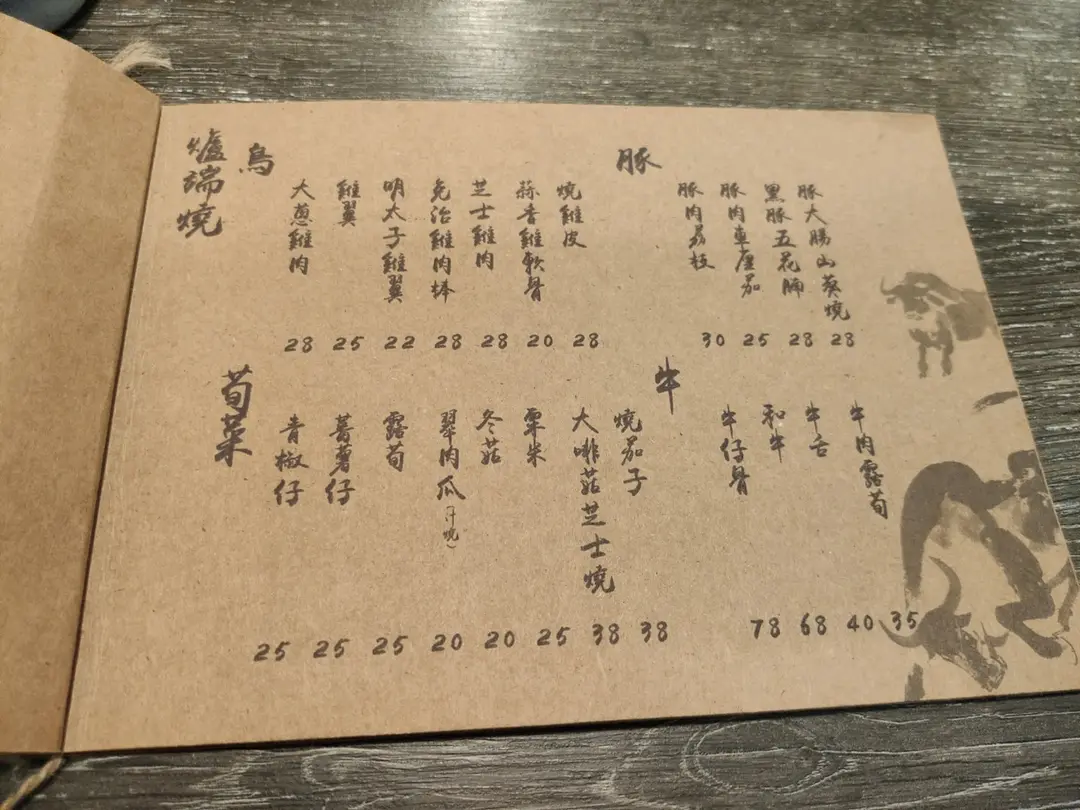 爐端燒
鳥
大蔥雞肉
28
雞翼
25
明太子雞翼
22
免治雞肉棒
28
芝士雞肉
28
蒜香雞軟骨
20
燒雞皮
28
豚
豚肉荔枝
30
豚肉車厘茄
25
黑豚五花腩
28
豚大腸山葵燒
28
荀菜
青椒仔
25
蕃薯仔
25
露荀
25
翠肉瓜(汁燒)
20
冬菇
20
粟米
25
大啡菇芝士燒
38
燒茄子
38
牛
牛仔骨
78
和牛
68
牛舌
40
牛肉露荀
35